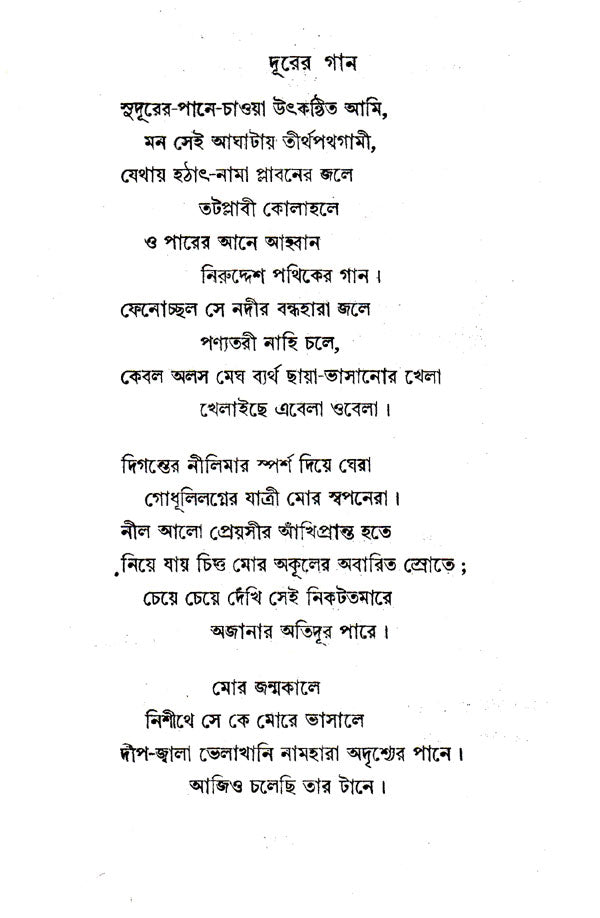 দূরের গান
সুদূরের-পানে-চাওয়া উৎকণ্ঠিত আমি,
মন সেই আঘাটায় তীর্থপথগামী,
যেথায় হঠাৎ-নামা প্লাবনের জলে
তটপ্লাবী কোলাহলে
ও পারের আনে আহ্বান
নিরুদ্দেশ পথিকের গান।
ফেনোচ্ছল সে নদীর বন্ধহারা জলে
পণ্যতরী নাহি চলে,
কেবল অলস মেঘ ব্যর্থ ছায়া-ভাসানোর খেলা
খেলাইছে এবেলা ওবেলা।
দিগন্তের নীলিমার স্পর্শ দিয়ে ঘেরা
গোধূলিলগ্নের যাত্রী মোর স্বপনেরা।
নীল আলো প্রেয়সীর আঁখিপ্রান্ত হতে
নিয়ে যায় চিত্ত মোর অকূলের অবারিত স্রোতে;
চেয়ে চেয়ে দেখি সেই নিকটতমারে
অজানার অতিদূর পারে।
মোর জন্মকালে
নিশীথে সে কে মোরে ভাসালে
দীপ-জ্বালা ভেলাখানি নামহারা অদৃশ্যের পানে।
আজিও চলেছি তার টানে।